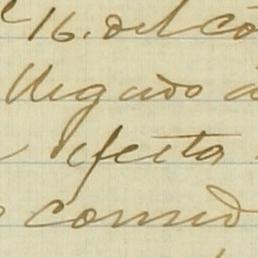 16. del co
llegado a
efecta
comid